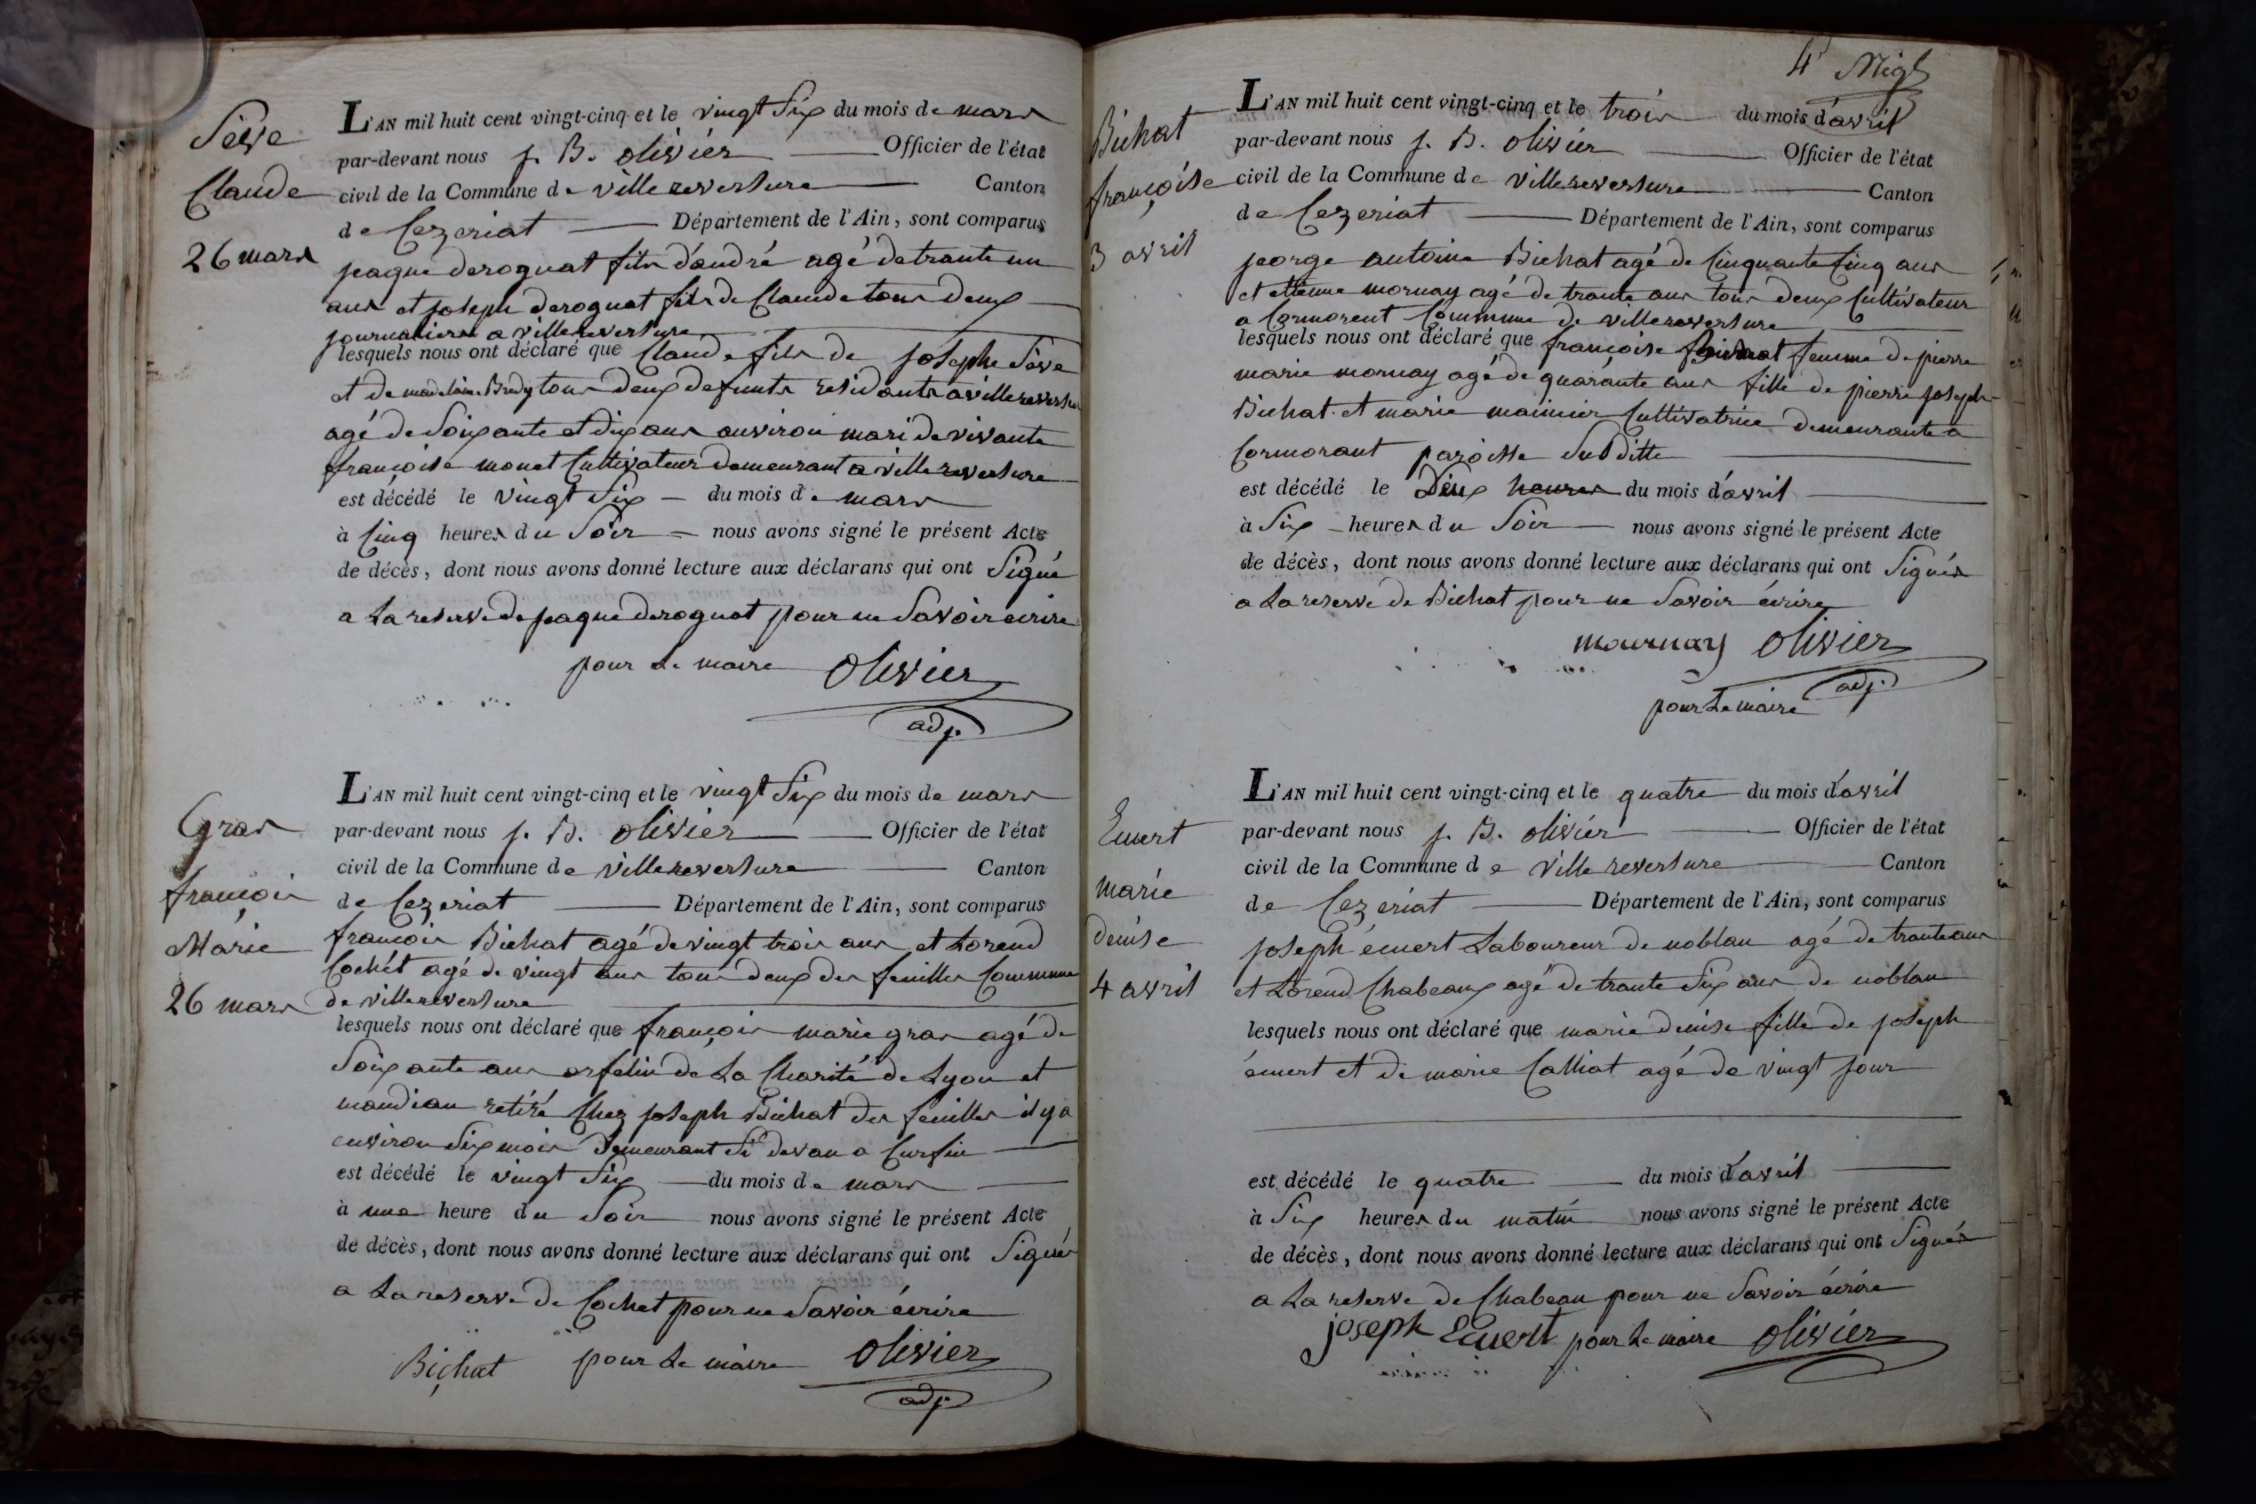 Sève
Claude
26 mars
L'AN mil huit cent vingt-cinq et le vingt Six du mois de mars
par-devant nous j. B. olivier Officier de l'état
civil de la Commune de villereversure Canton
de Cezeriat Département de l'Ain, sont comparus
jaque deroguat fils d'andré agé de trante un
ans et joseph deroguat fils de Claude tous deux
journaliers a villereversure
lesquels nous ont déclaré que Claude fils de josephe Sève
et de madelaine Bredy tous deux defunts residants a villereversure
agé de Soixante et dix ans anviron mari de vivante
françoise monet Cultivateur demeurant a villereversure
est décédé le vingt Six du mois de mars
à Cinq heures du Soir nous avons signé le présent Acte
de décès, dont nous avons donné lecture aux déclarans qui ont Signé
a La reserve de jaque deroguat pour ne Savoir ecrire
pour Le maire olivier
adj.
Gras
françois
Marie
26 mars
L'AN mil huit cent vingt-cinq et le vingt Six du mois de mars
par-devant nous j. B. olivier Officier de l'état
civil de la Commune de villereversure Canton
de Cezeriat Département de l'Ain, sont comparus
françois Bichat agé de vingt trois ans et Lorend
Cochet agé de vingt ans tous deux des feuilles Commune
de villereversure
lesquels nous ont déclaré que françois marie gras agé de
Soixante ans orfelin de La Charité de Lyon et
mandian retiré Chez joseph Bichat des feuilles il y a
environ Six mois demeurant Si devan a Curfin
est décédé le vingt Six du mois de mars
à une heure du Soir nous avons signé le présent Acte
de décès, dont nous avons donné lecture aux déclarans qui ont Signés
a La reserve de Cochet pour ne Savoir écrire
Bichat pour Le maire olivier
adj.
4
Bichat
françoise
3 avril
L'AN mil huit cent vingt-cinq et le trois du mois d'avril
par-devant nous j. B. olivier Officier de l'état
civil de la Commune de villereversure Canton
de Cezeriat Département de l'Ain, sont comparus
jeorge antoine Bichat agé de Cinquante Cinq ans
et etienne mornay agé de trante ans tous deux Cultivateur
a Cormorent Commune de villereversure
lesquels nous ont déclaré que françoise Bichat femme de pierre
marie mornay agé de quarante ans fille de pierre joseph
Bichat et marie mainier Cultivatrice demeurante a
Cormorant paroisse Sus ditte
est décédé le Deux heures du mois d'avril
à Six heures du Soir nous avons signé le présent Acte
de décès, dont nous avons donné lecture aux déclarans qui ont Signés
a La reserve de Bichat pour ne Savoir écrire
mournay olivier
adj.
pour Le maire
Emert
marie
denise
4 avril
L'AN mil huit cent vingt-cinq et le quatre du mois d'avril
par-devant nous j. B. olivier Officier de l'état
civil de la Commune de villereversure Canton
de Cezeriat Département de l'Ain, sont comparus
joseph émert Laboureur de noblan agé de trante ans
et Lorend Chabeaux agé de trante Six ans de noblan
lesquels nous ont déclaré que marie denise fille de joseph
émert et de marie Calliat agé de vingt jour
est décédé le quatre du mois d'avril
à Six heures du matin nous avons signé le présent Acte
de décès, dont nous avons donné lecture aux déclarans qui ont Signés
a La reserve de Chabeau pour ne Savoir écrire
joseph Emert pour Le maire olivier